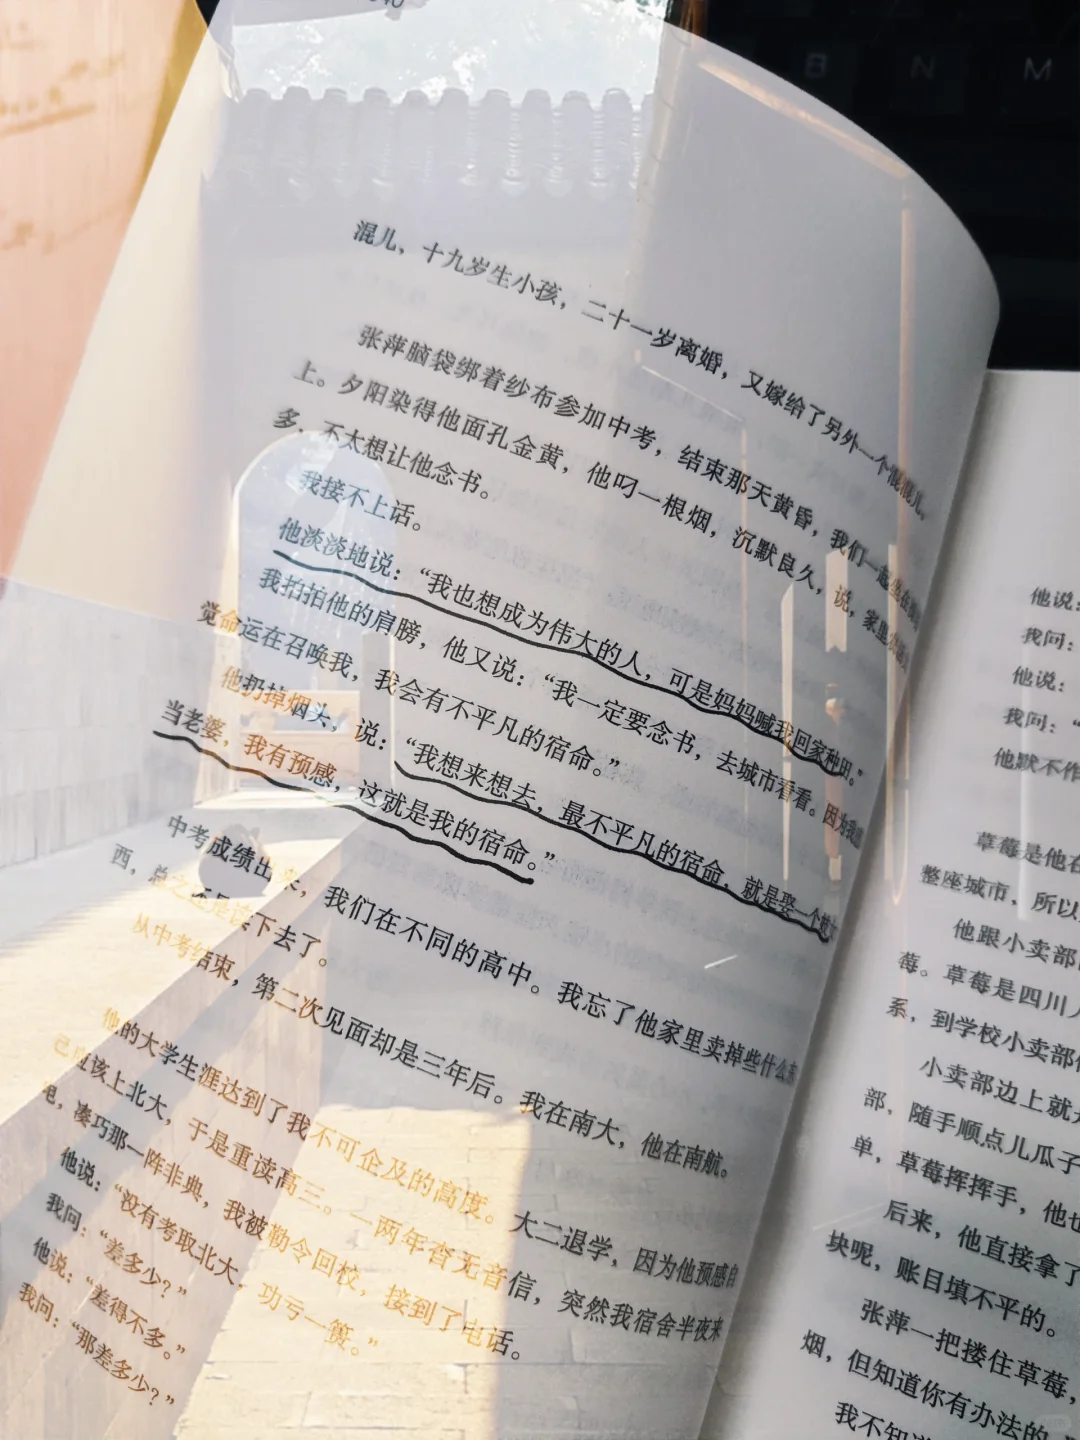 混儿，十九岁生小孩，二十一岁离婚，又嫁给了另外一个混混儿。
张萍脑袋绑着纱布参加中考，结束那天黄昏，我们一起坐在
上。夕阳染得他面孔金黄，他叼一根烟，沉默良久，说，家里
多，不太想让他念书。
我接不上话。
他淡淡地说：“我也想成为伟大的人，可是妈妈喊我回家种田。”
我拍拍他的肩膀，他又说：“我一定要念书，去城市看看。因为我
觉命运在召唤我，我会有不平凡的宿命。”
他扔掉烟头，说：“我想来想去，最不平凡的宿命，就是娶一个
当老婆，我有预感，这就是我的宿命。”
中考成绩出来，我们在不同的高中。我忘了他家里卖掉些什么东
西，总之还是读下去了。
从中考结束，第二次见面却是三年后。我在南大，他在南航。
他的大学生涯达到了我不可企及的高度。大二退学，因为他预感自
己应该上北大，于是重读高三。一两年杳无音信，突然我宿舍半夜来
电，凑巧那一阵非典，我被勒令回校，接到了电话。
他说：“没有考取北大，功亏一篑。”
我问：“差多少？”
他说：“差得不多。”
我问：“那差多少？”
他说：
我问：
他说：
我问：“
他默不作
草莓是他在
整座城市，所以
他跟小卖部
莓。草莓是四川人
系，到学校小卖部
小卖部边上就
部，随手顺点儿瓜子
单，草莓挥挥手，他也
后来，他直接拿了
块呢，账目填不平的。
张萍一把搂住草莓，
烟，但知道你有办法的
我不知道
B N M